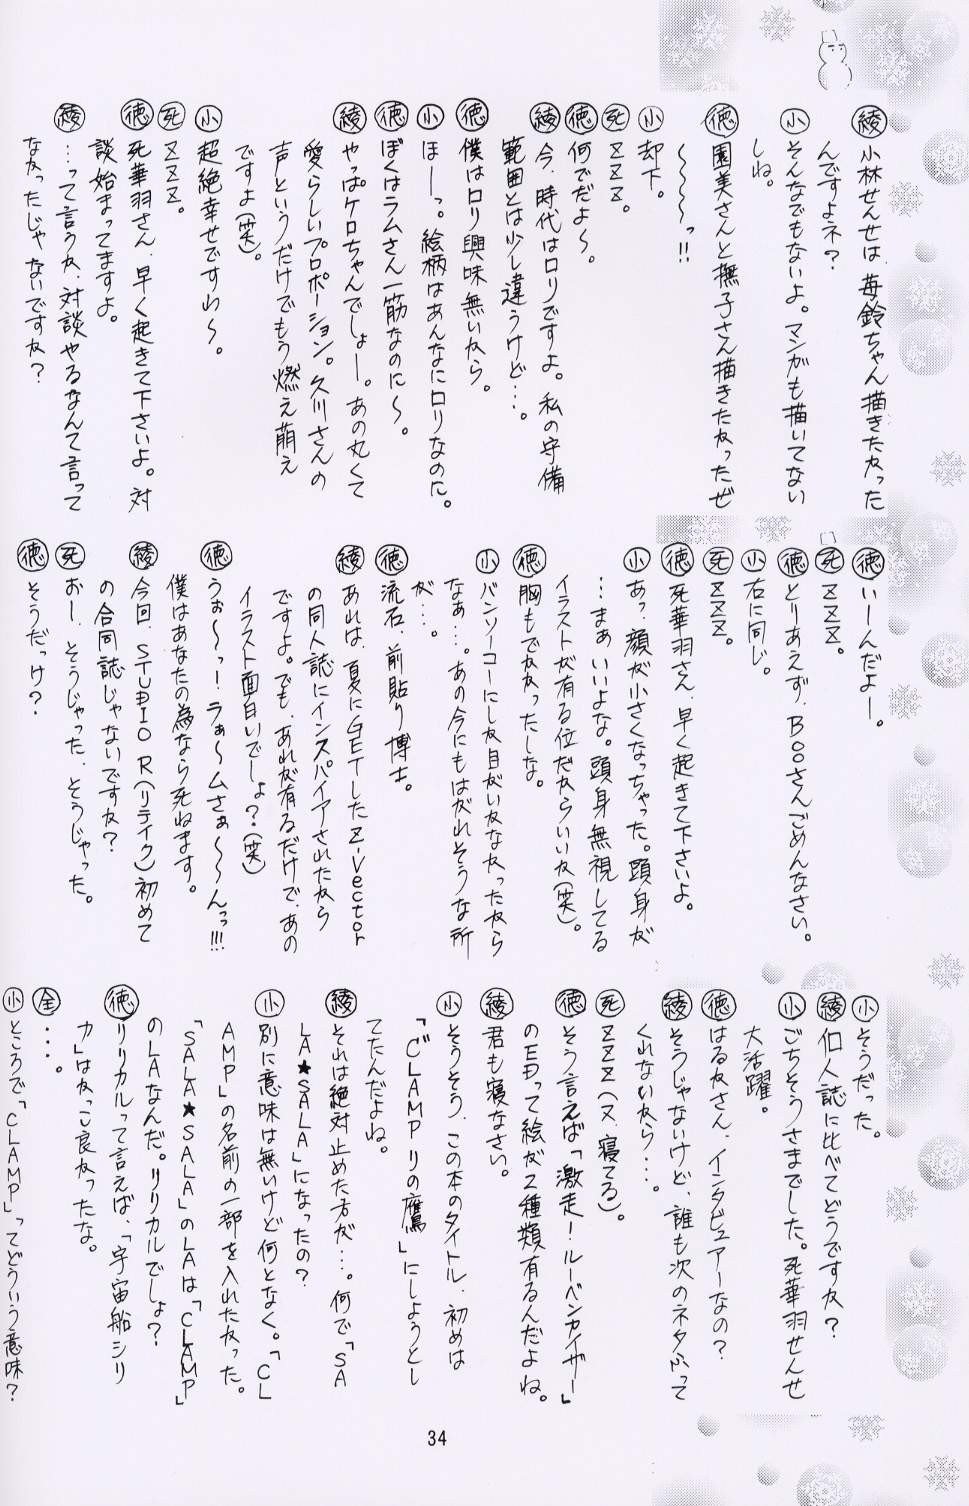 綾 小林せんせは、苺鈴ちゃん描きたかった
んですよネ?
小 そんなでもないよ。マンガも描いてない
しね。
徳 園美さんと撫子さん描きたかったぜ
〜〜〜〜っ!!
小 却下。
死 ZZZ。
徳 何でだよ〜。
綾 今、時代はロリですよ。私の守備
範囲とは少し違うけど…。
徳 僕はロリ興味無いから。
小 ほーっ。絵柄はあんなにロリなのに。
徳 ぼくはラムさん一筋なのに〜。
綾 やっぱケロちゃんでしょー。あの丸くて
愛らしいプロポーション。久川さんの
声というだけでもう燃え萌え
ですよ(笑)。
小 超絶幸せですわ〜。
死 ZZZ。
徳 死華羽さん、早く起きて下さいよ。対
談始まってますよ。
綾 …って言うか、対談やるなんて言って
なかったじゃないですか?
徳 いーんだよー。
死 ZZZ。
徳 とりあえず、BOOさんごめんなさい。
小 右に同じ。
死 ZZZ。
徳 死華羽さん、早く起きて下さいよ。
小 あっ、顔が小さくなっちゃった。頭身が
…まぁいいよな。頭身無視してる
イラストが有る位だからいいか(笑)。
徳 胸もでかかったしな。
小 バンソーコーにしか目がいかなかったから
なぁ…。あの今にもはがれそうな所
が…。
徳 流石、前貼り博士。
綾 あれは、夏にGETしたZ-Vector
の同人誌にインスパイアされたから
ですよ。でも、あれが有るだけで、あの
イラスト面白いでしょ?(笑)
徳 うぉ〜っ!ラぁ〜ムさぁ〜〜んっ!!!
僕はあなたの為なら死ねます。
綾 今回、STUDIO R(リテイク)初めて
の合同誌じゃないですか?
死 おー、そうじゃった、そうじゃった。
徳 そうだっけ?
小 そうだった。
綾 個人誌に比べてどうですか?
小 ごちそうさまでした。死華羽せんせ
大活躍。
徳 はるかさん、インタビュアーなの?
綾 そうじゃないけど、誰も次のネタふって
くれないから…。
死 ZZZ(又、寝てる)。
徳 そう言えば「激走!ルーベンカイザー」
のEDって絵が2種類有るんだよね。
綾 君も寝なさい。
小 そうそう、この本のタイトル、初めは
「CLAMPリの鷹」にしようとし
てたんだよね。
綾 それは絶対止めた方が…。何で「SA
LA★SALA」になったの?
小 別に意味は無いけど何となく。「CL
AMP」の名前の一部を入れたかった。
「SALA★SALA」のLAは「CLAMP」
のLAなんだ。リリカルでしょ?
徳 リリカルって言えば、「宇宙船シリ
カ」はかっこ良かったな。
全 …。
小 ところで「CLAMP」ってどういう意味?
34